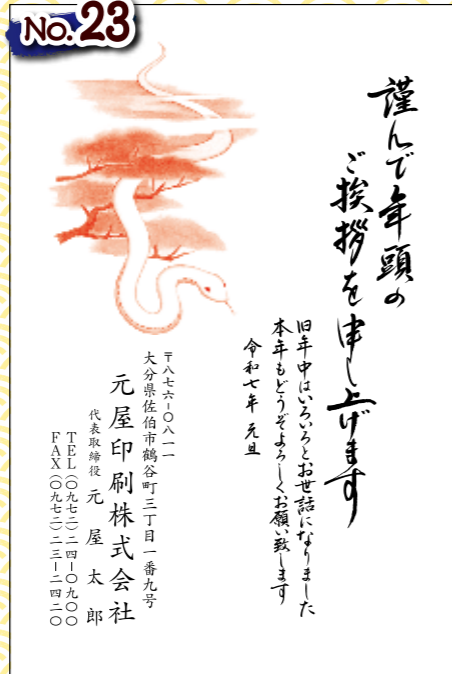 No.23
謹んで年頭の
ご挨拶を申し上げます
旧年中はいろいろとお世話になりました
本年もどうぞよろしくお願い致します
令和七年 元旦
〒八七六-〇八一一
大分県佐伯市鶴谷町三丁目一番九号
元屋印刷株式会社
代表取締役 元屋太郎
TEL(〇九七二)二四-〇九〇〇
FAX(〇九七二)二三-二四二〇